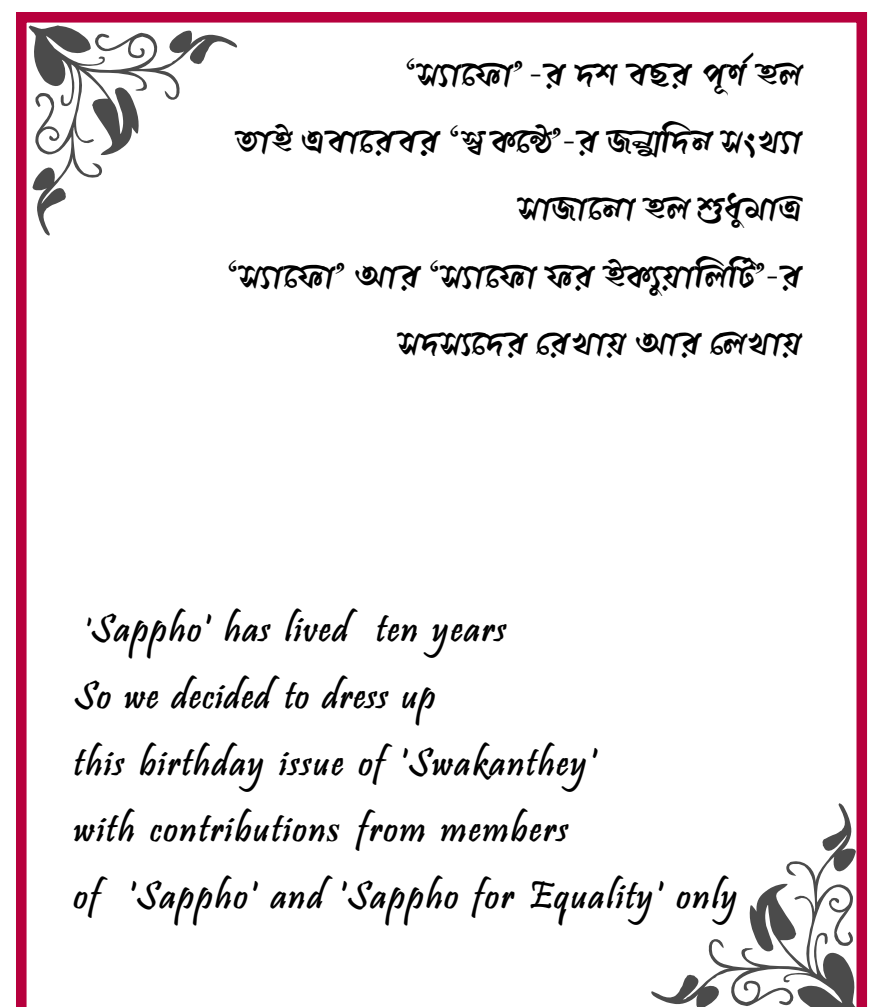 ‘স্যাফো’ -র দশ বছর পূর্ণ হল
তাই এবারেবর ‘স্ব কন্ঠে’-র জন্মদিন সংখ্যা
সাজানো হল শুধুমাত্র
‘স্যাফো’ আর ‘স্যাফো ফর ইক্যুয়ালিটি’-র
সদস্যদের রেখায় আর লেখায়
'Sappho' has lived ten years
So we decided to dress up
this birthday issue of 'Swakanthey'
with contributions from members
of 'Sappho' and 'Sappho for Equality' only